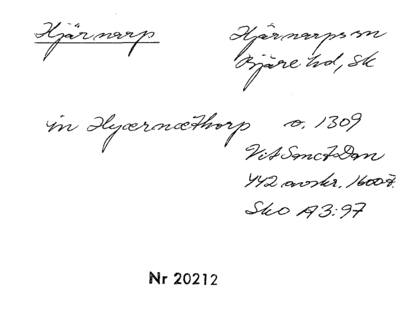 Hjärnarp
Hjärnarps sn
Bjäre hd, Sk
in Hyærnæthorp o. 1309
VitSanctDan
442 avskr. 1600-t.
Sko A3:97
Nr 20212